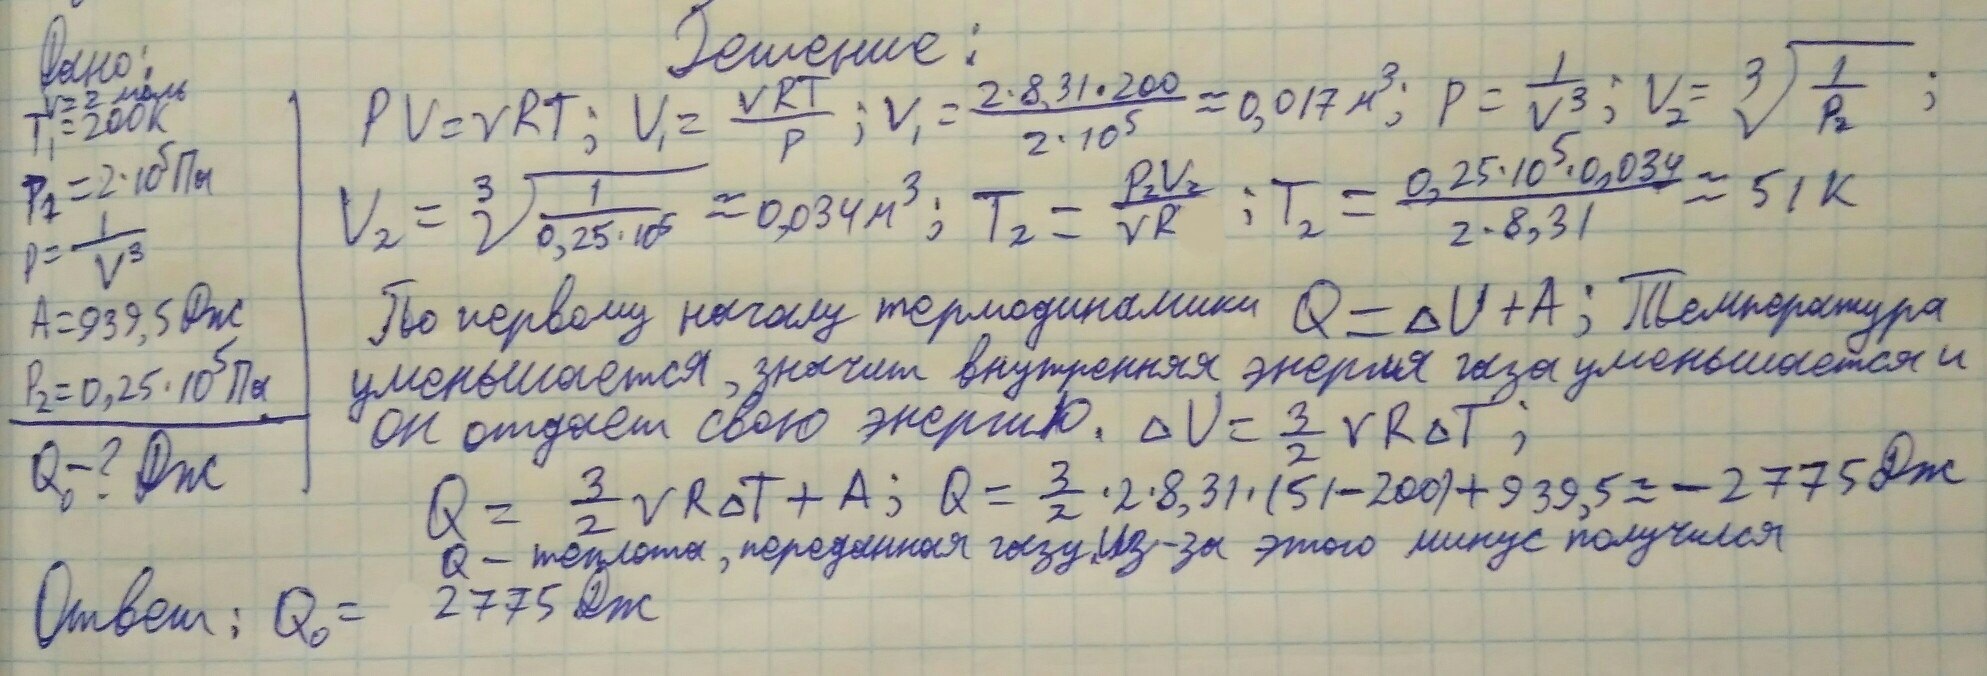 Дано:
ν=2 моль
T₁=200К
P₁=2·10⁵Па
p=1/V³
A=939,5 Дж
P₂=0,25·10⁵Па
Q₀-? Дж
Решение:
PV=νRT; V₁=νRT/P; V₁=2·8,31·200/2·10⁵≈0,017м³; p=1/V³; V₂=³√(1/P₂);
V₂=³√(1/0,25·10⁵)≈0,034м³; T₂=P₂V₂/νR; T₂=0,25·10⁵·0,034/2·8,31≈51К
По первому началу термодинамики Q=ΔU+A; Температура
уменьшается, значит внутренняя энергия газа уменьшается и
он отдает свою энергию. ΔU=3/2 νRΔT;
Q=3/2 νRΔT+A; Q=3/2·2·8,31·(51-200)+939,5≈-2775Дж
Q - теплота, переданная газу. Из-за этого минус получился
Ответ: Q₀= 2775Дж